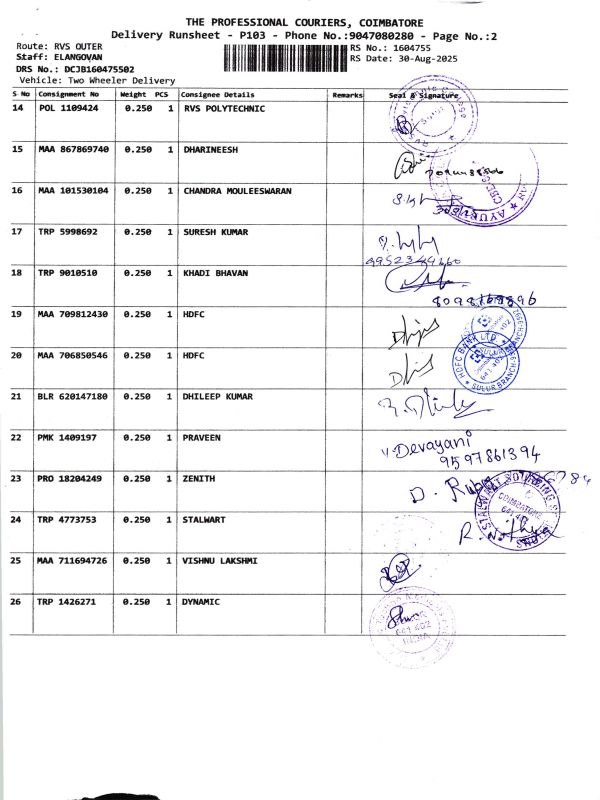 THE PROFESSIONAL COURIERS, COIMBATORE
Delivery Runsheet - P103 - Phone No.:9047080280 - Page No.:2
Route: RVS OUTER RS No.: 1604755
Staff: ELANGOVAN RS Date: 30-Aug-2025
DRS No.: DCJB160475502
Vehicle: Two Wheeler Delivery
S No Consignment No Weight PCS Consignee Details Remarks Seal & Signature
14 POL 1109424 0.250 1 RVS POLYTECHNIC
15 MAA 867869740 0.250 1 DHARINEESH
16 MAA 101530104 0.250 1 CHANDRA MOULEESWARAN
AYUR
17 TRP 5998692 0.250 1 SURESH KUMAR
18 TRP 9010510 0.250 1 KHADI BHAVAN
19 MAA 709812430 0.250 1 HDFC
20 MAA 706850546 0.250 1 HDFC
HDFC BANK LTD.
SULUR
641 402
SULUR BRANCH
21 BLR 620147180 0.250 1 DHILEEP KUMAR
22 PMK 1409197 0.250 1 PRAVEEN
V. Devayani
9597861394
23 PRO 18204249 0.250 1 ZENITH
24 TRP 4773753 0.250 1 STALWART
COIMBATORE
25 MAA 711694726 0.250 1 VISHNU LAKSHMI
26 TRP 1426271 0.250 1 DYNAMIC
641 402
INDIA